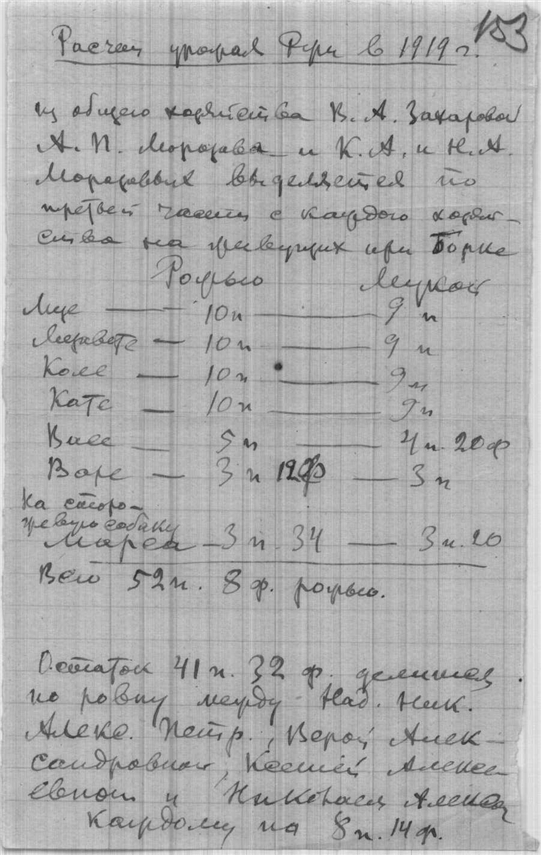 153
Расчет урожая Ржи в 1919 г.
из общего хозяйства В. А. Захаровой
А. П. Морозова и К. А. и Н. А.
Морозовых выделяется по
третьей части с каждого хозяй-
ства на живущих при Борке
Рожью Мукой
10 п 9 п
Лизавете — 10 п 9 п
Коле — 10 п 9 п
Кате — 10 п 9 п
Васе — 5 п — 4 п. 20 ф
Варе — 3 п 12 ф — 3 п
На сторо-
жевую собаку
Марса — 3 п. 34 — 3 п. 20
Всего 52 п. 8 ф. рожью.
Остаток 41 п. 32 ф. делится
по ровну между Над. Ник.
Алекс. Петр., Верой Алек-
сандровной, Ксенией Алексе-
евной и Николаем Алексее
Каждому по 8 п. 14 ф.